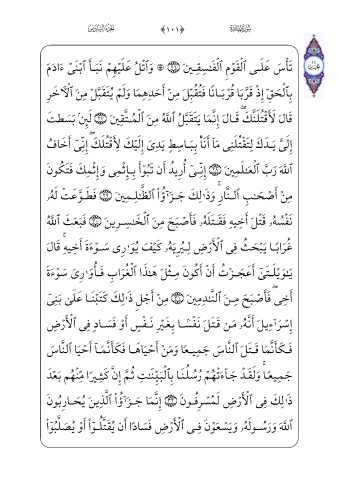 سورة المائدة ﴿١٠١﴾ الجزء السادس
تَأْسَ عَلَى الْقَوْمِ الْفَاسِقِينَ ﴿٢٦﴾ ۞ وَاتْلُ عَلَيْهِمْ نَبَأَ ابْنَيْ ءَادَمَ
بِالْحَقِّ إِذْ قَرَّبَا قُرْبَانًا فَتُقُبِّلَ مِنْ أَحَدِهِمَا وَلَمْ يُتَقَبَّلْ مِنَ الْآخَرِ
قَالَ لَأَقْتُلَنَّكَ ۖ قَالَ إِنَّمَا يَتَقَبَّلُ اللَّهُ مِنَ الْمُتَّقِينَ ﴿٢٧﴾ لَئِنْ بَسَطْتَ
إِلَيَّ يَدَكَ لِتَقْتُلَنِي مَا أَنَا۠ بِبَاسِطٍ يَدِيَ إِلَيْكَ لِأَقْتُلَكَ ۖ إِنِّي أَخَافُ
اللَّهَ رَبَّ الْعَالَمِينَ ﴿٢٨﴾ إِنِّي أُرِيدُ أَنْ تَبُوٓأَ بِإِثْمِي وَإِثْمِكَ فَتَكُونَ
مِنْ أَصْحَابِ النَّارِ ۚ وَذَٰلِكَ جَزَٰٓؤُا الظَّالِمِينَ ﴿٢٩﴾ فَطَوَّعَتْ لَهُۥ
نَفْسُهُۥ قَتْلَ أَخِيهِ فَقَتَلَهُۥ فَأَصْبَحَ مِنَ الْخَاسِرِينَ ﴿٣٠﴾ فَبَعَثَ اللَّهُ
غُرَابًا يَبْحَثُ فِي الْأَرْضِ لِيُرِيَهُۥ كَيْفَ يُوَارِي سَوْءَةَ أَخِيهِ ۚ قَالَ
يَٰوَيْلَتَىٰٓ أَعَجَزْتُ أَنْ أَكُونَ مِثْلَ هَٰذَا الْغُرَابِ فَأُوَارِيَ سَوْءَةَ
أَخِي ۖ فَأَصْبَحَ مِنَ النَّادِمِينَ ﴿٣١﴾ مِنْ أَجْلِ ذَٰلِكَ كَتَبْنَا عَلَىٰ بَنِيٓ
إِسْرَٰٓءِيلَ أَنَّهُۥ مَنْ قَتَلَ نَفْسًا بِغَيْرِ نَفْسٍ أَوْ فَسَادٍ فِي الْأَرْضِ
فَكَأَنَّمَا قَتَلَ النَّاسَ جَمِيعًا وَمَنْ أَحْيَاهَا فَكَأَنَّمَآ أَحْيَا النَّاسَ
جَمِيعًا ۚ وَلَقَدْ جَآءَتْهُمْ رُسُلُنَا بِالْبَيِّنَاتِ ثُمَّ إِنَّ كَثِيرًا مِنْهُمْ بَعْدَ
ذَٰلِكَ فِي الْأَرْضِ لَمُسْرِفُونَ ﴿٣٢﴾ إِنَّمَا جَزَٰٓؤُا الَّذِينَ يُحَارِبُونَ
اللَّهَ وَرَسُولَهُۥ وَيَسْعَوْنَ فِي الْأَرْضِ فَسَادًا أَنْ يُقَتَّلُوٓا أَوْ يُصَلَّبُوٓا